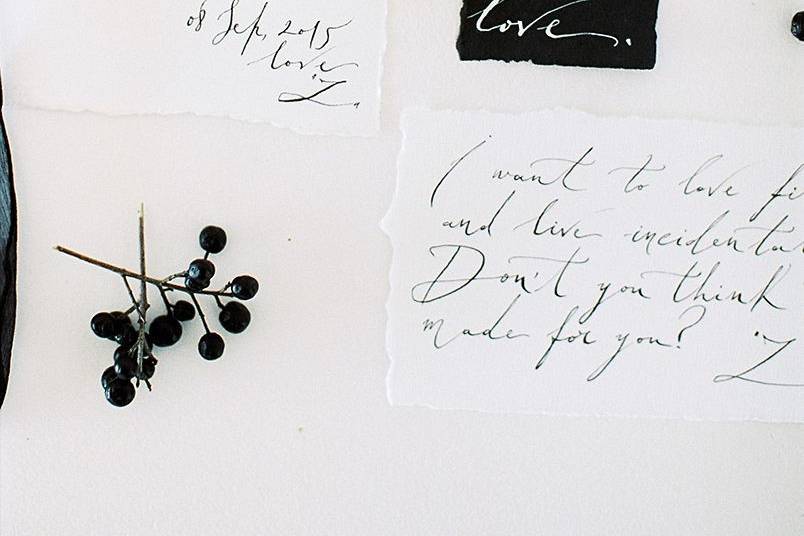 08 Sep, 2015
love
"Z,
love.
I want to love fi
and live incidenta
Don't you think
made for you?
"Z